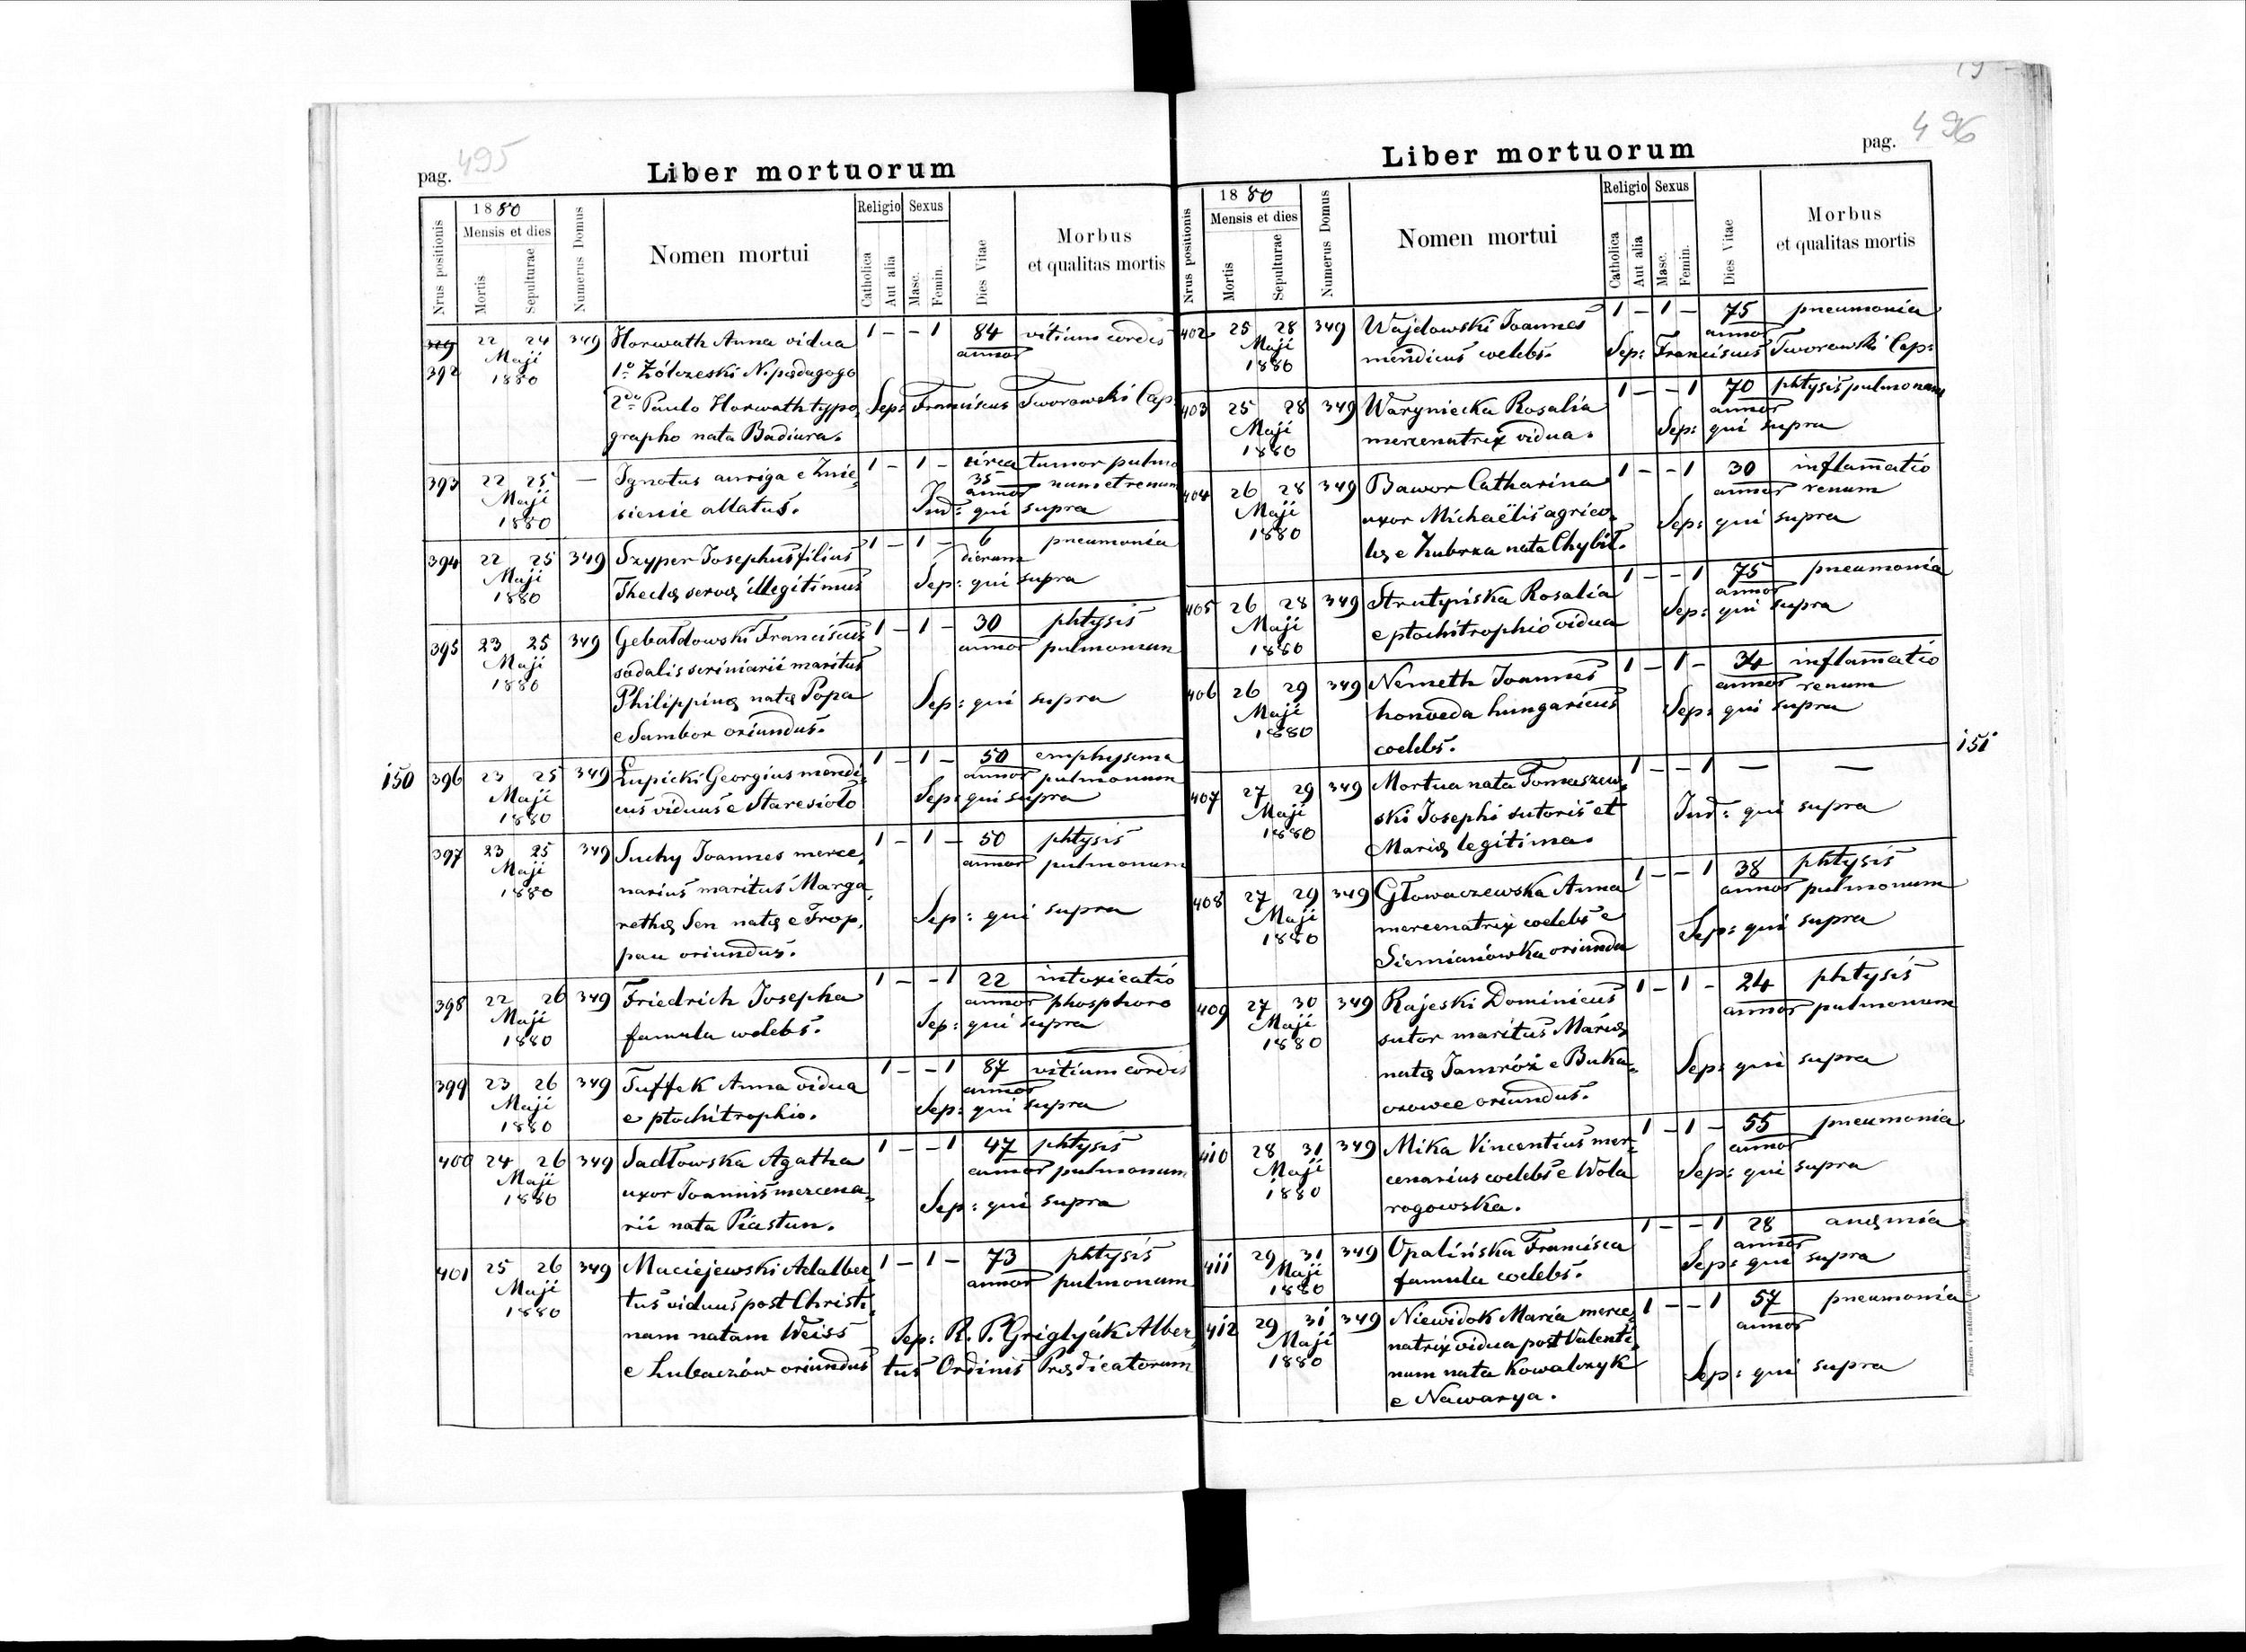 pag. 495
Liber mortuorum
Nrus positionis
1880
Mensis et dies
Mortis
Sepulturae
Numerus Domus
Nomen mortui
Religio
Catholica
Aut alia
Sexus
Masc.
Femin.
Dies Vitae
Morbus
et qualitas mortis
392 22 24 349 Horwath Anna vidua 1 – – 1 84 vitium cordis
Maji 1880 annor
1º Żółczeski N. pædagogo
2do Paulo Horwath typo Sep: Franciscus Tworowski Cap:
grapho nata Badiura.
393 22 25 – Ignotus auriga e Znie 1 – 1 – circa tumor pulmo
Maji 1880 35 annor num et renum
sienie allatus. Ind: qui supra
394 22 25 349 Szyper Josephus filius 1 – 1 – 6 pneumonia
Maji 1880 dierum
Theclæ servæ illegitimus Sep: qui supra
395 23 25 349 Gebałdowski Franciscus 1 – 1 – 30 phtysis
Maji 1880 sodalis scriniarii maritus annor pulmonum
Philippinæ natæ Popa Sep: qui supra
e Sambor oriundus.
150 396 23 25 349 Łupicki Georgius mendi 1 – 1 – 50 emphysema
Maji annor pulmonum
1880 cus viduus e Staresioło Sep: qui supra
397 23 25 349 Suchy Joannes merce 1 – 1 – 50 phtysis
Maji annor pulmonum
1880 narius maritus Marga
rethæ Sen natæ e Trop, Sep: qui supra
pau oriundus.
398 22 26 349 Friedrich Josepha 1 – – 1 22 intoxicatio
Maji annor phosphoro
1880 famula coelebs. Sep: qui supra
399 23 26 349 Tuffek Anna vidua 1 – – 1 87 vitium cordis
Maji annor
1880 e ptochitrophio. Sep: qui supra
400 24 26 349 Sadłowska Agatha 1 – – 1 47 phtysis
Maji annor pulmonum
1880 uxor Joannis mercena Sep: qui supra
rii nata Piastun.
401 25 26 349 Maciejewski Adalber 1 – 1 – 73 phtysis
Maji annor pulmonum
1880 tus viduus post Christi
nam natam Weiss Sep: R. P. Griglyák Alber
e Lubaczów oriundus tus Ordinis Prædicatorum
Liber mortuorum
pag. 496
Nrus positionis
1880
Mensis et dies
Mortis
Sepulturae
Numerus Domus
Nomen mortui
Religio
Catholica
Aut alia
Sexus
Masc.
Femin.
Dies Vitae
Morbus
et qualitas mortis
402 25 28 349 Wajdowski Joannes 1 – 1 – 75 pneumonia
Maji annor
1880 mendicus coelebs. Sep: Franciscus Tworowski Cap:
403 25 28 349 Waryniecka Rosalia 1 – – 1 70 phtysis pulmonum
Maji annor
1880 mercenatrix vidua. Sep: qui supra
404 26 28 349 Bawor Catharina 1 – – 1 30 inflamatio
Maji annor renum
1880 uxor Michaëlis agrico Sep: qui supra
læ e Zubrza nata Chybił.
405 26 28 349 Strutyńska Rosalia 1 – – 1 75 pneumonia
Maji annor
1880 e ptochitrophio vidua Sep: qui supra
406 26 29 349 Nemeth Joannes 1 – 1 – 34 inflamatio
Maji annor renum
1880 honveda hungaricus Sep: qui supra
coelebs.
151
407 27 29 349 Mortua nata Tomaszew 1 – – 1 — —
Maji
1880 ski Josephi sutoris et Ind: qui supra
Mariæ legitima.
408 27 29 349 Głowaczewska Anna 1 – – 1 38 phtysis
Maji annor pulmonum
1880 mercenatrix coelebs e Sep: qui supra
Siemianówka oriunda
409 27 30 349 Rajeski Dominicus 1 – 1 – 24 phtysis
Maji annor pulmonum
1880 sutor maritus Mariæ
natæ Jamróz e Buka Sep: qui supra
czowce oriundus.
410 28 31 349 Mika Vincentius mer 1 – 1 – 55 pneumonia
Maji annor
1880 cenarius coelebs e Wola Sep: qui supra
rogowska.
411 29 31 349 Opalińska Francisca 1 – – 1 28 anæmia
Maji annor
1880 famula coelebs. Sep: qui supra
412 29 31 349 Niewidok Maria merce 1 – – 1 57 pneumonia
Maji annor
1880 natrix vidua post Valenti
num nata Kowalczyk Sep: qui supra
e Nawarya.